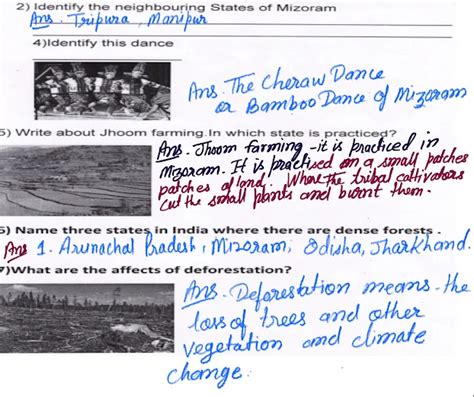 2) Identify the neighbouring States of Mizoram
Ans. Tripura, Manipur
4)Identify this dance
Ans. The Cheraw Dance
or Bamboo Dance of Mizoram
5) Write about Jhoom farming.In which state is practiced?
Ans. Jhoom farming - it is practiced in
Mizoram. It is practised on a small patches
patches of land. Where the tribal cultivators
cut the small plants and burnt them.
6) Name three states in India where there are dense forests .
Ans 1. Arunachal Pradesh, Mizoram, Odisha, Jharkhand.
7)What are the affects of deforestation?
Ans. Deforestation means - the
loss of trees and other
vegetation and climate
change.